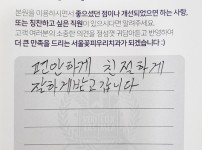 본원을 이용하시면서 좋으셨던 점이나 개선되었으면 하는 사항,
또는 칭찬하고 싶은 직원이 있으시다면 말씀해주세요.
고객 여러분의 소중한 의견을 정성껏 귀담아듣고 반영하여
더 큰 만족을 드리는 서울꽃피우리치과가 되겠습니다 :)
편안하게 친절하게
잘하게받고갑니다